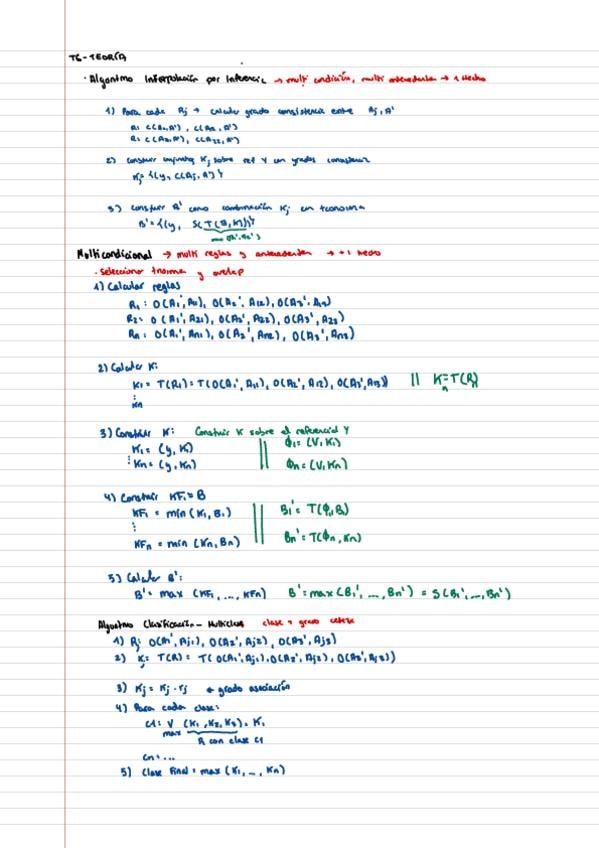 T6 - TEORÍA
· Algoritmo Interpolación por Inferencia → multi condición, multi antecedente → 1 hecho
1) Para cada Rj → calcular grado consistencia entre Rj, A'
2) Construir conjunto Kj sobre ref Y con grados consistencia
Kj = {(y, C(Aj, A'))}
3) Construir B' como combinación Kj con tconorma
B' = {(y, S(T(B,K)))}
Multicondicional → multi reglas y antecedentes → +1 hecho
· Seleccionar tnorma y overlap
1) Calcular reglas
R1: O(A1', A11), O(A2', A12), O(A3', A13)
R2: O(A1', A21), O(A2', A22), O(A3', A23)
Rn: O(A1', An1), O(A2', An2), O(A3', An3)
2) Calcular K:
K1 = T(R1) = T(O(A1', A11), O(A2', A12), O(A3', A13)) || Kn = T(Rn)
⋮
Kn
3) Construir K: Construir K sobre el referencial Y
K1 = (y, K1) || Φ1 = (V, K1)
⋮ Kn = (y, Kn) || Φn = (V, Kn)
4) Construir KFi = B
KF1 = min (K1, B1) || B1' = T(Φ1, B1)
⋮
KFn = min (Kn, Bn) || Bn' = T(Φn, Kn)
5) Calcular B':
B' = max (KF1, ..., KFn) B' = max (B1', ..., Bn') = S(B1', ..., Bn')
Algoritmo Clasificación - Multiclase
1) Rj: O(A1', Aj1), O(A2', Aj2), O(A3', Aj3)
2) Kj = T(R) = T(O(A1', Aj1), O(A2', Aj2), O(A3', Aj3))
3) Kj = Kj · rj ← grado asociación
4) Para cada clase:
C1: V (K1, K2, K3) = K1
max
R con clase C1
Cn = ...
5) Clase Final = max (K1, ..., Kn)